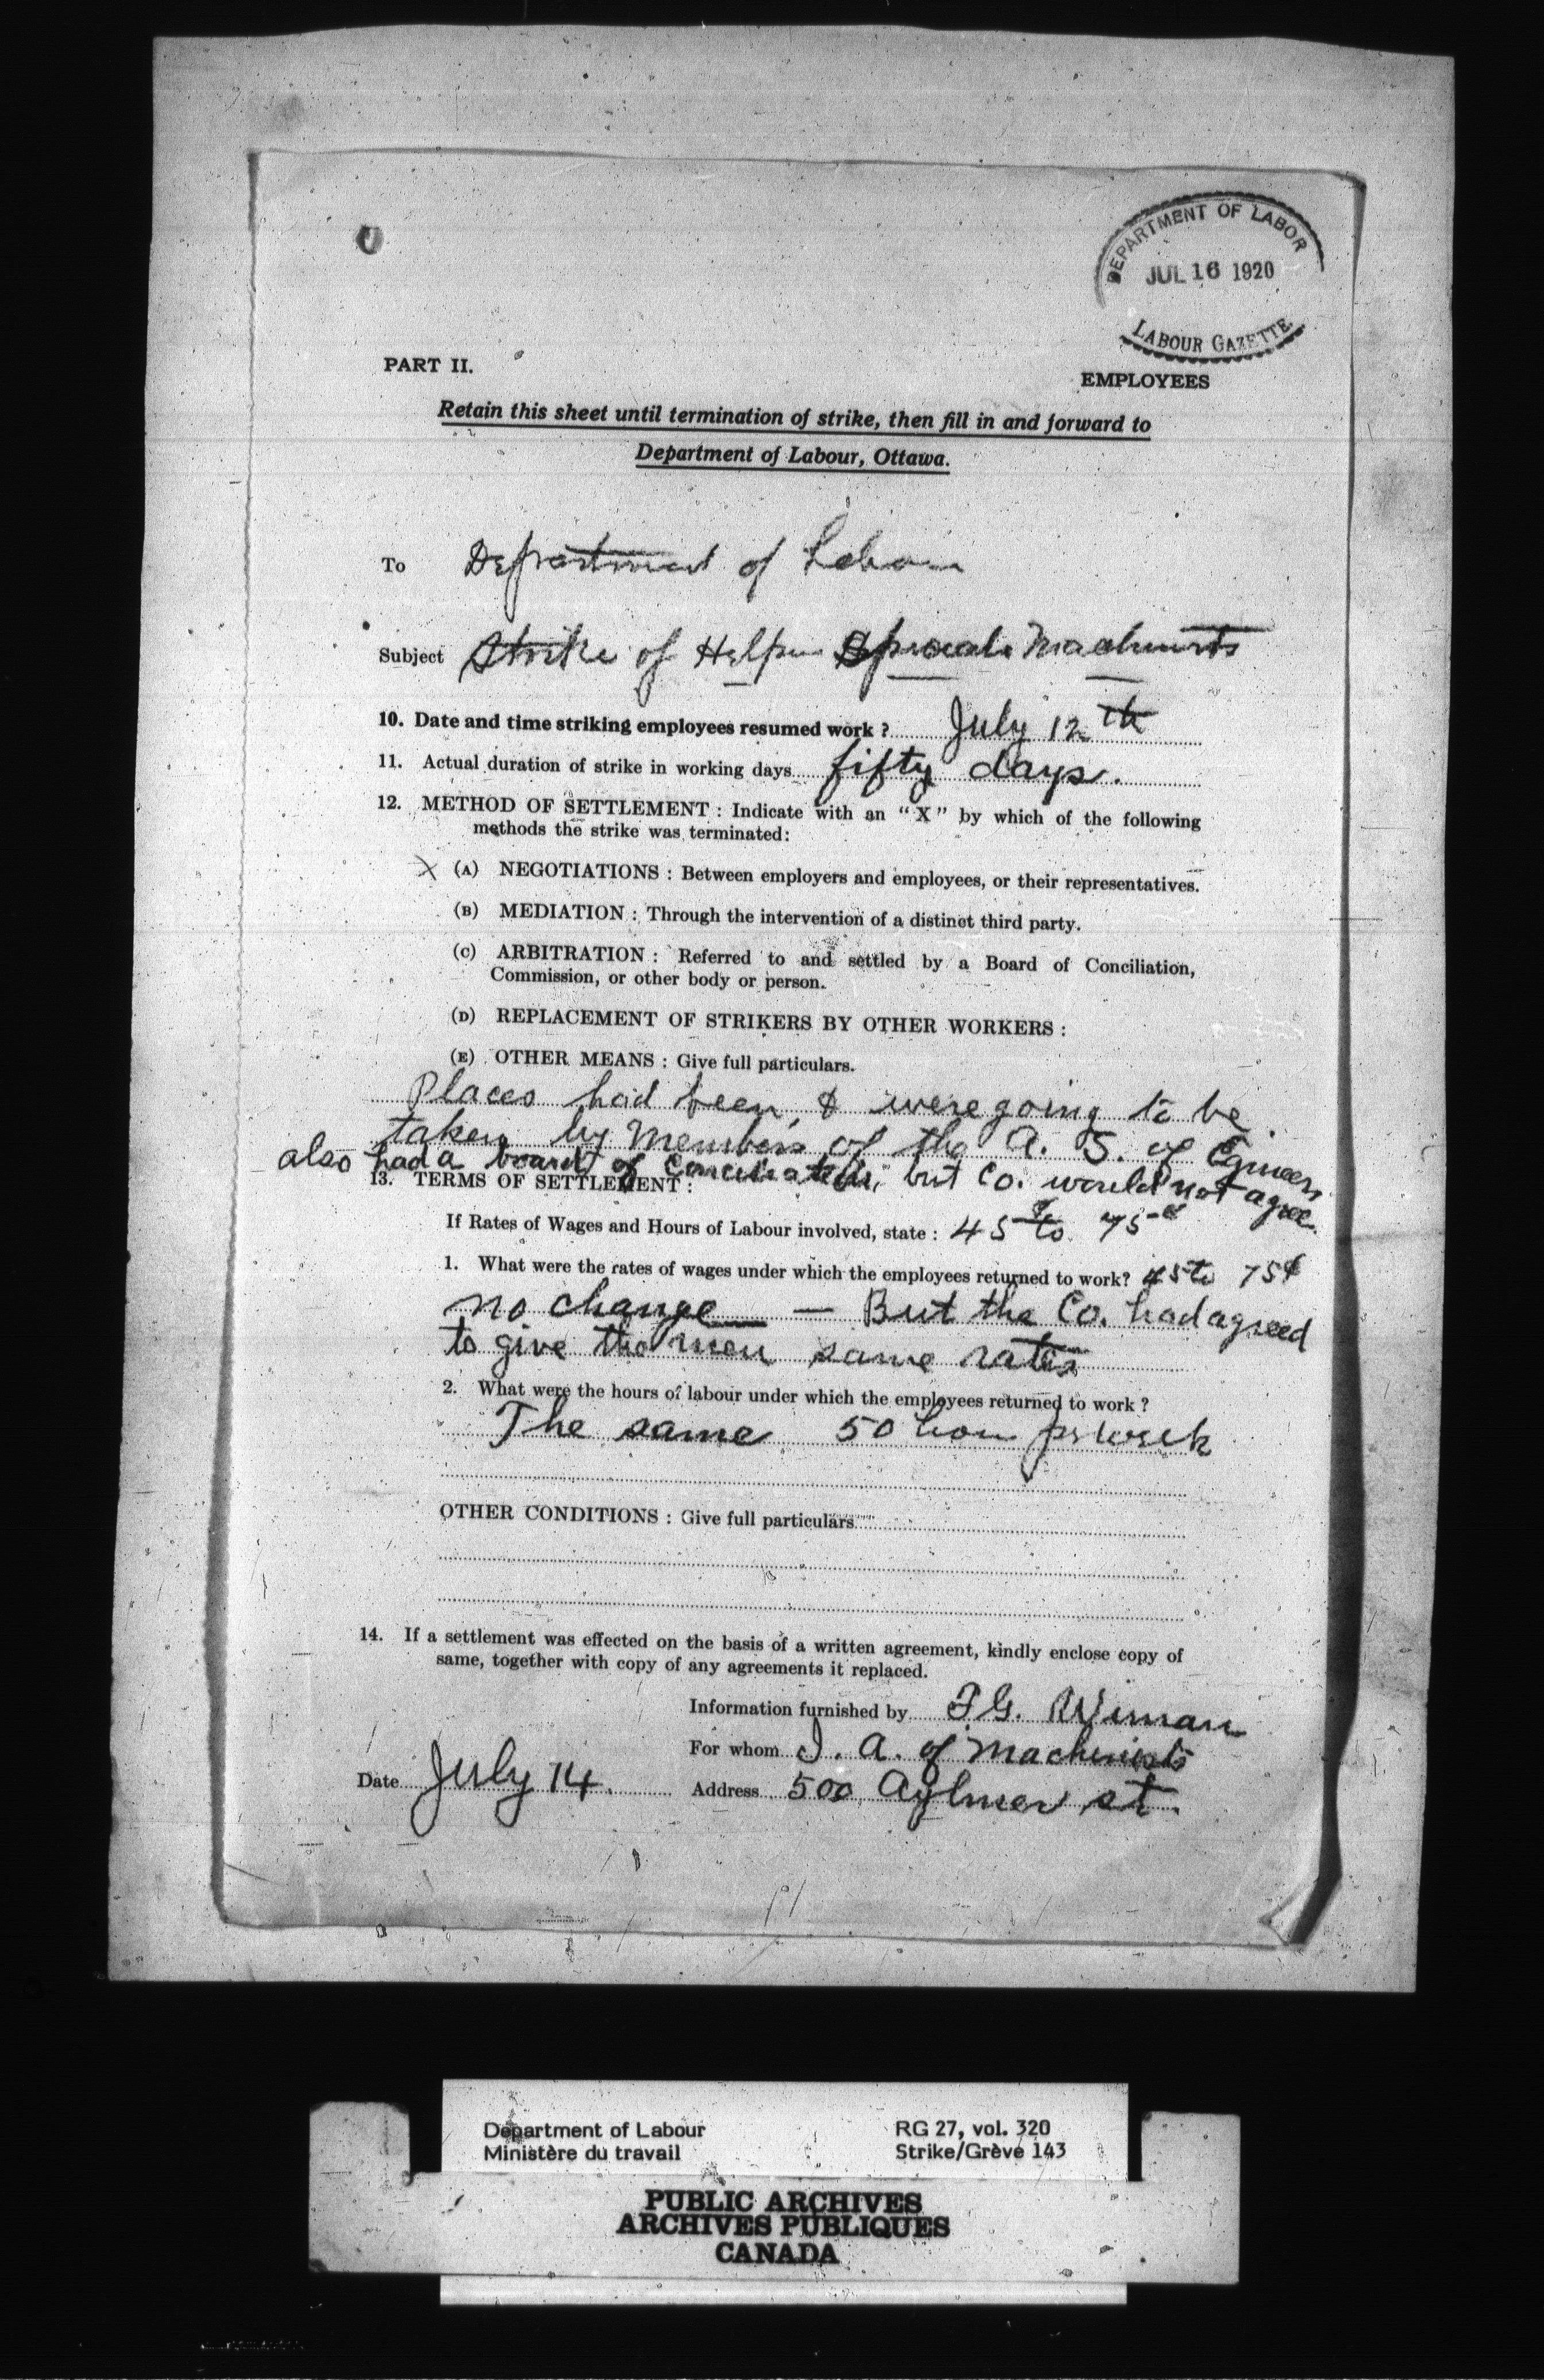 DEPARTMENT OF LABOR
JUL 16 1920
LABOUR GAZETTE
PART II.
EMPLOYEES
Retain this sheet until termination of strike, then fill in and forward to
Department of Labour, Ottawa.
To Department of Labour
Subject Strike of Helpers Specials Machinists
10. Date and time striking employees resumed work ? July 12th
11. Actual duration of strike in working days fifty days.
12. METHOD OF SETTLEMENT : Indicate with an "X" by which of the following
methods the strike was terminated:
X (A) NEGOTIATIONS : Between employers and employees, or their representatives.
(B) MEDIATION : Through the intervention of a distinct third party.
(C) ARBITRATION : Referred to and settled by a Board of Conciliation,
Commission, or other body or person.
(D) REPLACEMENT OF STRIKERS BY OTHER WORKERS :
(E) OTHER MEANS : Give full particulars.
Places had been & were going to be
taken by Members of the A. S. of Egineers
also had a board of Conciliation, but Co. would not agree.
13. TERMS OF SETTLEMENT :
If Rates of Wages and Hours of Labour involved, state : 45¢ to 75¢
1. What were the rates of wages under which the employees returned to work? 45 to 75¢
no change — But the Co. had agreed
to give the men same rates
2. What were the hours of labour under which the employees returned to work ?
The same 50 hour per week
OTHER CONDITIONS : Give full particulars
14. If a settlement was effected on the basis of a written agreement, kindly enclose copy of
same, together with copy of any agreements it replaced.
Information furnished by
For whom I. A. of Machinists
Date July 14. Address 500 Aylmer st.
Department of Labour RG 27, vol. 320
Ministère du travail Strike/Grève 143
PUBLIC ARCHIVES
ARCHIVES PUBLIQUES
CANADA